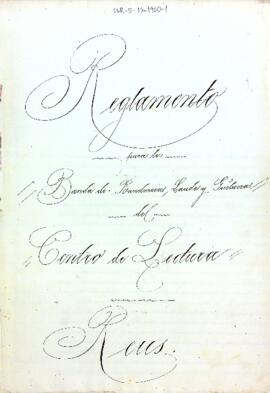 CLR-5-19-1900-1
Reglamento
para la
"Banda de Bandurrias, Lauds y Guitarras"
del
"Centro de Lectura"
Reus.